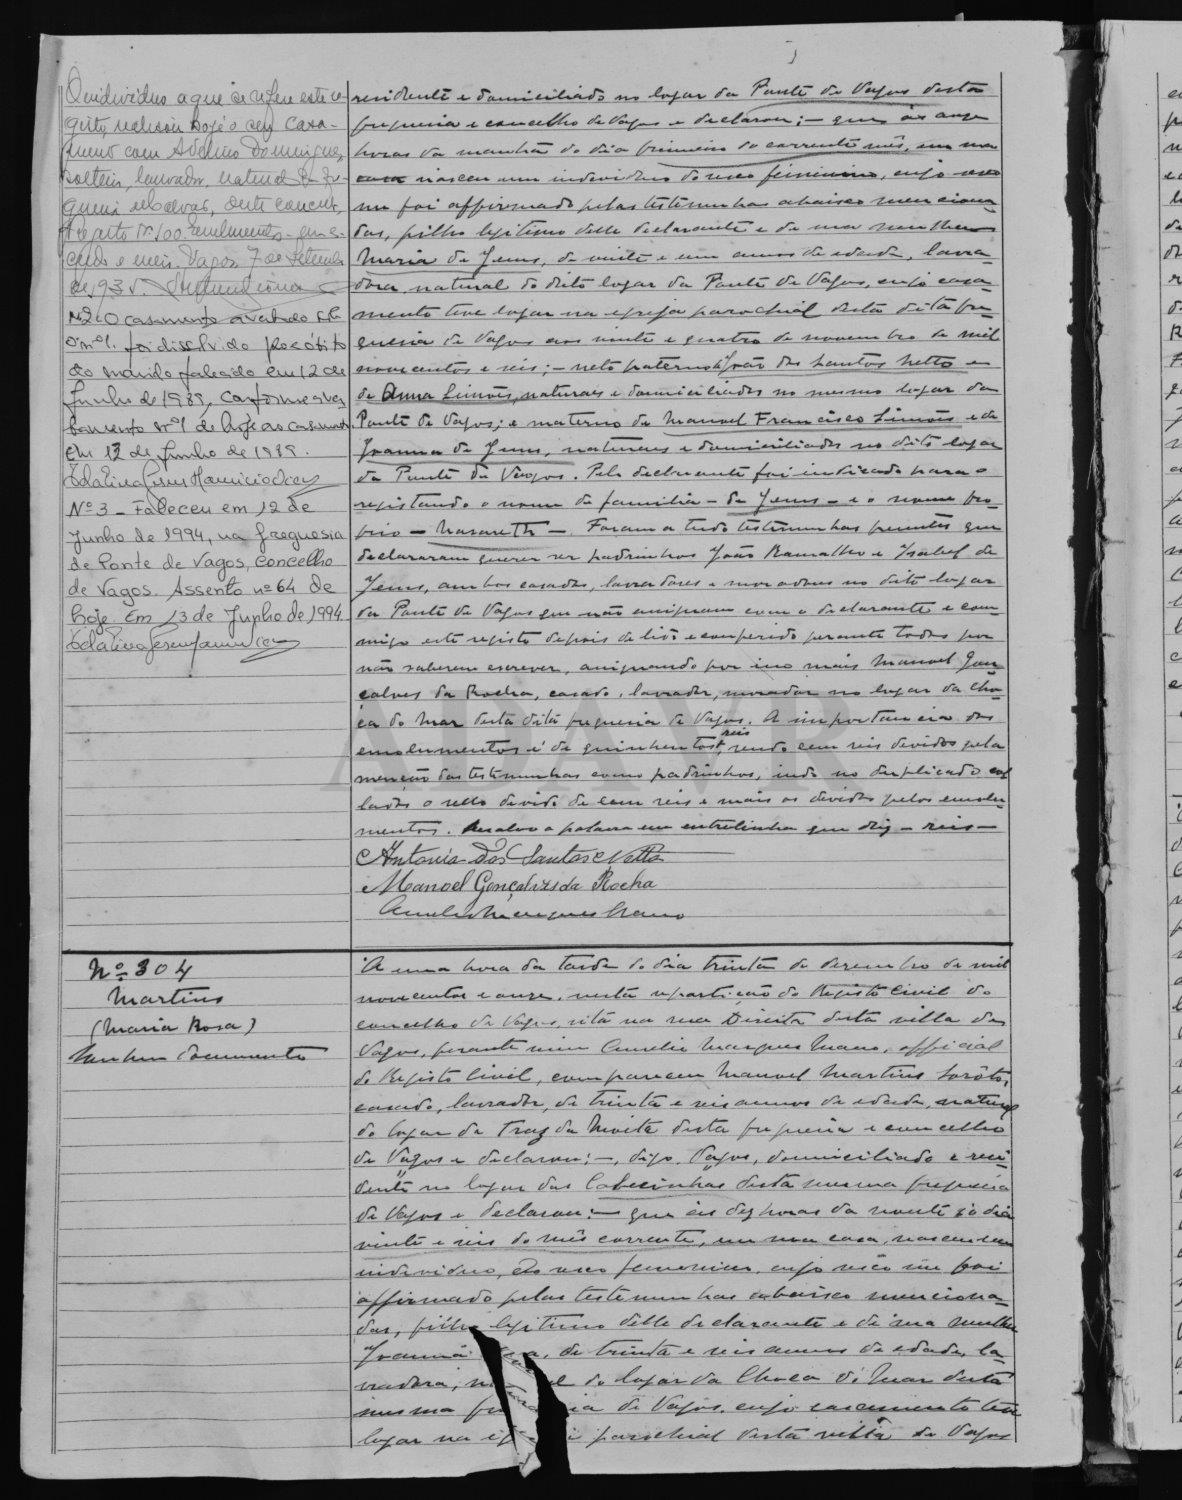 O individuo a que se refere este re-
gisto realisou hoje o seu casa-
mento com Adelino Domingues,
solteiro, lavrador, natural da fre-
guesia de Calvão, deste concelho,
Vagos 7 de Setembro
de 193
Nº2 O casamento averbado sob
o nº1. foi dissolvido por óbito
do marido falecido em 12 de
Junho de 1989, conforme aver-
bamento nº1 de hoje ao casamento.
Em 13 de Junho de 1989.
Nº 3 - Faleceu em 12 de
Junho de 1994, na freguesia
de Ponte de Vagos, concelho
de Vagos. Assento nº 64 de
hoje. Em 13 de Junho de 1994.
residente e domiciliado no logar da Ponte de Vagos desta
freguesia e concelho de Vagos e declarou; — que ás onze
horas da manhã do dia primeiro do corrente mês, em sua
casa nasceu um individuo do sexo feminino, cujo sexo
me foi affirmado pelas testemunhas abaixo menciona-
das, filho legitimo delle declarante e de sua mulher
Maria de Jesus, de vinte e um annos de edade, lavra-
dora, natural do dito logar da Ponte de Vagos, cujo casa-
mento teve logar na egreja parochial desta dita fre-
guesia de Vagos aos vinte e quatro de novembro de mil
novecentos e seis; — neto paterno de João dos Santos Netto e
de Anna Simões, naturais e domiciliados no mesmo logar da
Ponte de Vagos; e materno de Manuel Francisco Simões e de
Joanna de Jesus, naturaes e domiciliados no dito logar
da Ponte de Vagos. Pelo declarante foi indicado para o
registando o nome de familia — de Jesus — e o nome pro-
prio — Nasareth —. Foram a tudo testemunhas presentes que
declararam querer ser padrinhos João Ramalho e Isabel de
Jesus, ambos casados, lavradores e moradores no dito logar
da Ponte de Vagos que não assignam com o declarante e com-
migo este registo depois de lido e conferido perante todos por
não saberem escrever, assignando por isso mais Manuel Gon-
çalves da Rocha, casado, lavrador, morador no logar da Cho-
ca do Mar desta dita freguesia de Vagos. A importancia dos
emolumentos é de quinhentos reis, sendo cem reis devidos pela
menção das testemunhas como padrinhos, indo no duplicado col-
lados o sello devido de cem reis e mais os devidos pelos emolu-
mentos. Resalvo a palavra em entrelinha que diz — reis —
Antonio Dos Santos Netto
Manoel Gonçalves da Rocha
Aurelio Marques Mano
Nº 304
Martins
(Maria Rosa)
Nenhum documento
A uma hora da tarde do dia trinta de dezembro de mil
novecentos e onze, nesta repartição do Registo Civil do
concelho de Vagos, sita na rua Direita desta villa de
Vagos, perante mim Aurelio Marques Mano, official
do Registo Civil, compareceu Manuel Martins
casado, lavrador, de trinta e seis annos de edade, natural
do logar de Traz da Moita desta freguesia e concelho
de Vagos e declarou; —, digo, Vagos, domiciliado e resi-
dente no logar das Cabecinhas desta mesma freguesia
de Vagos e declarou: — que ás dez horas da noute do dia
vinte e seis do mês corrente, em sua casa, nasceu um
individuo, do sexo femenino, cujo sexo me foi
affirmado pelas testemunhas abaixo menciona-
das, filho legitimo delle declarante e de sua mulher
Joanna de trinta e seis annos de edade, la-
vradora, do logar da Choca do Mar desta
mesma de Vagos, cujo casamento teve
logar na parochial desta villa de Vagos
ADAVR